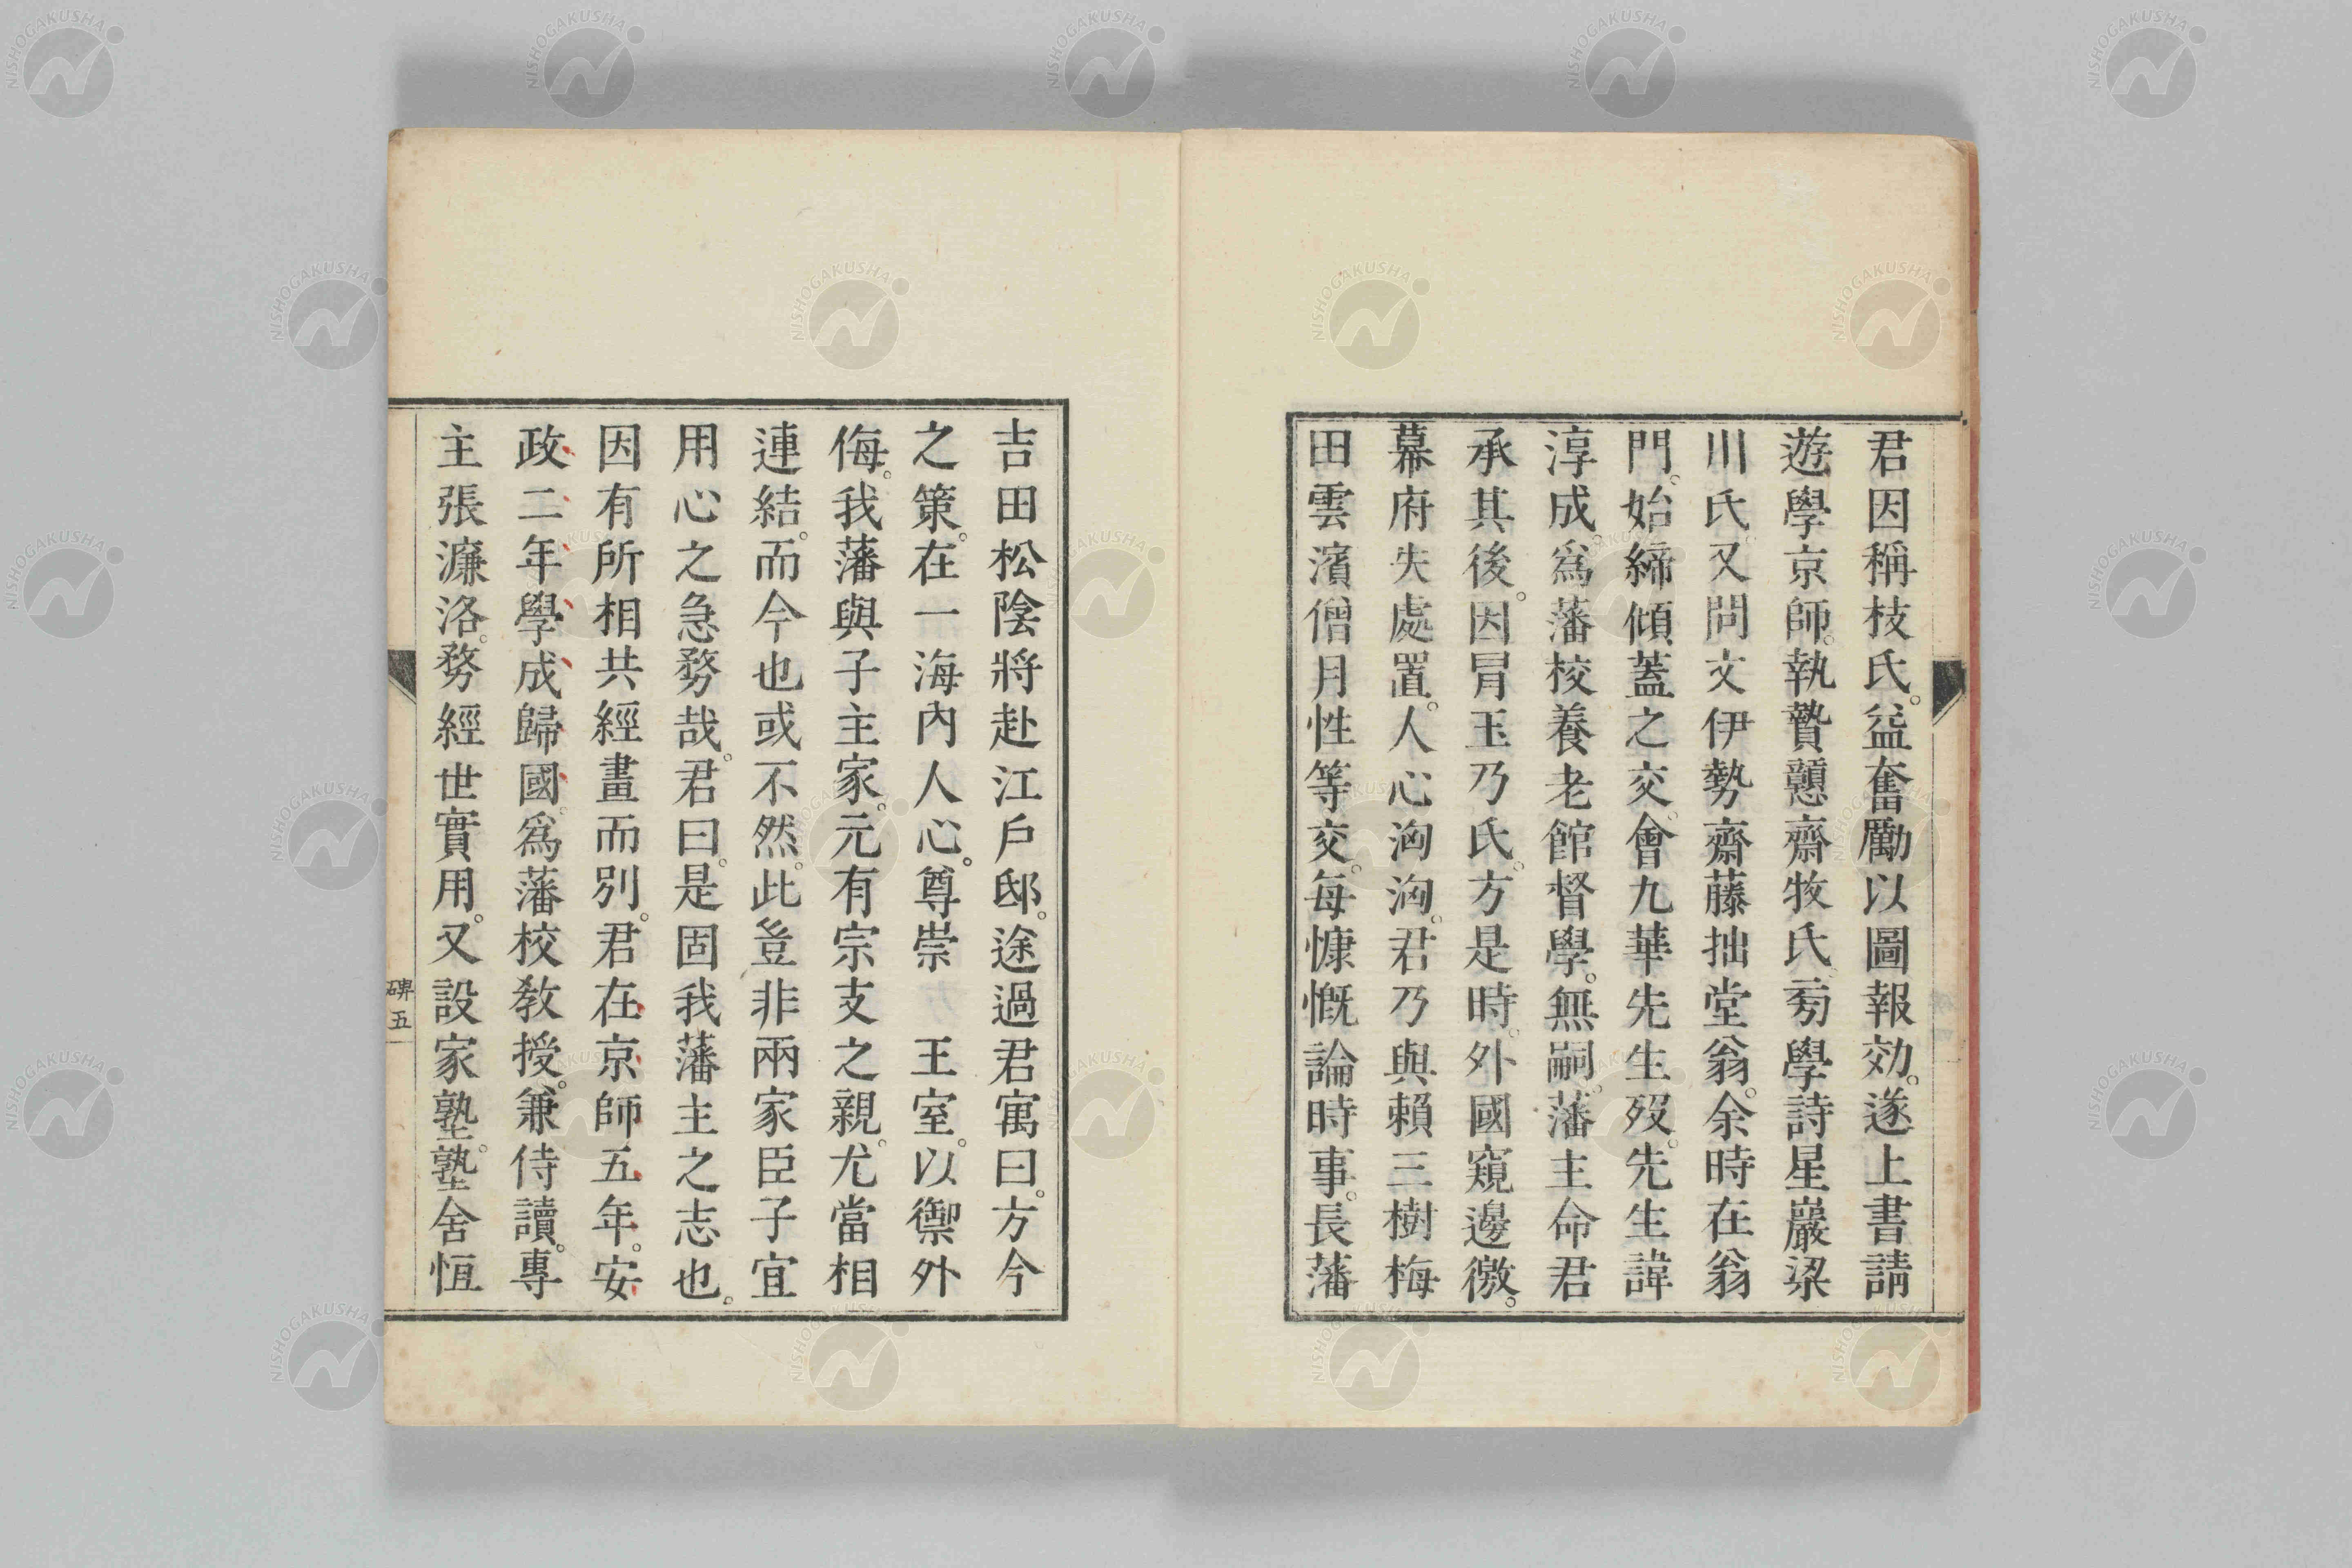 君因稱枝氏。益奮勵以圖報効。遂上書請
遊學京師。執贄戇齋牧氏。旁學詩星巖梁
川氏。又問文伊勢齋藤拙堂翁。余時在翁
門。始締傾蓋之交。會九華先生歿。先生諱
淳成。爲藩校養老館督學。無嗣。藩主命君
承其後。因冒玉乃氏。方是時。外國窺邊徼。
幕府失處置。人心洶洶。君乃與賴三樹梅
田雲濱僧月性等交。每慷慨論時事。長藩
吉田松陰將赴江戶邸。途過君寓曰。方今
之策。在一海內人心。尊崇 王室。以禦外
侮。我藩與子主家。元有宗支之親。尤當相
連結。而今也或不然。此豈非兩家臣子宜
用心之急務哉。君曰。是固我藩主之志也。
因有所相共經畫而別。君在京師五年。安
政二年學成歸國。爲藩校教授。兼侍讀。專
主張濂洛。務經世實用。又設家塾。塾舍恒
碑五
NISHOGAKUSHA